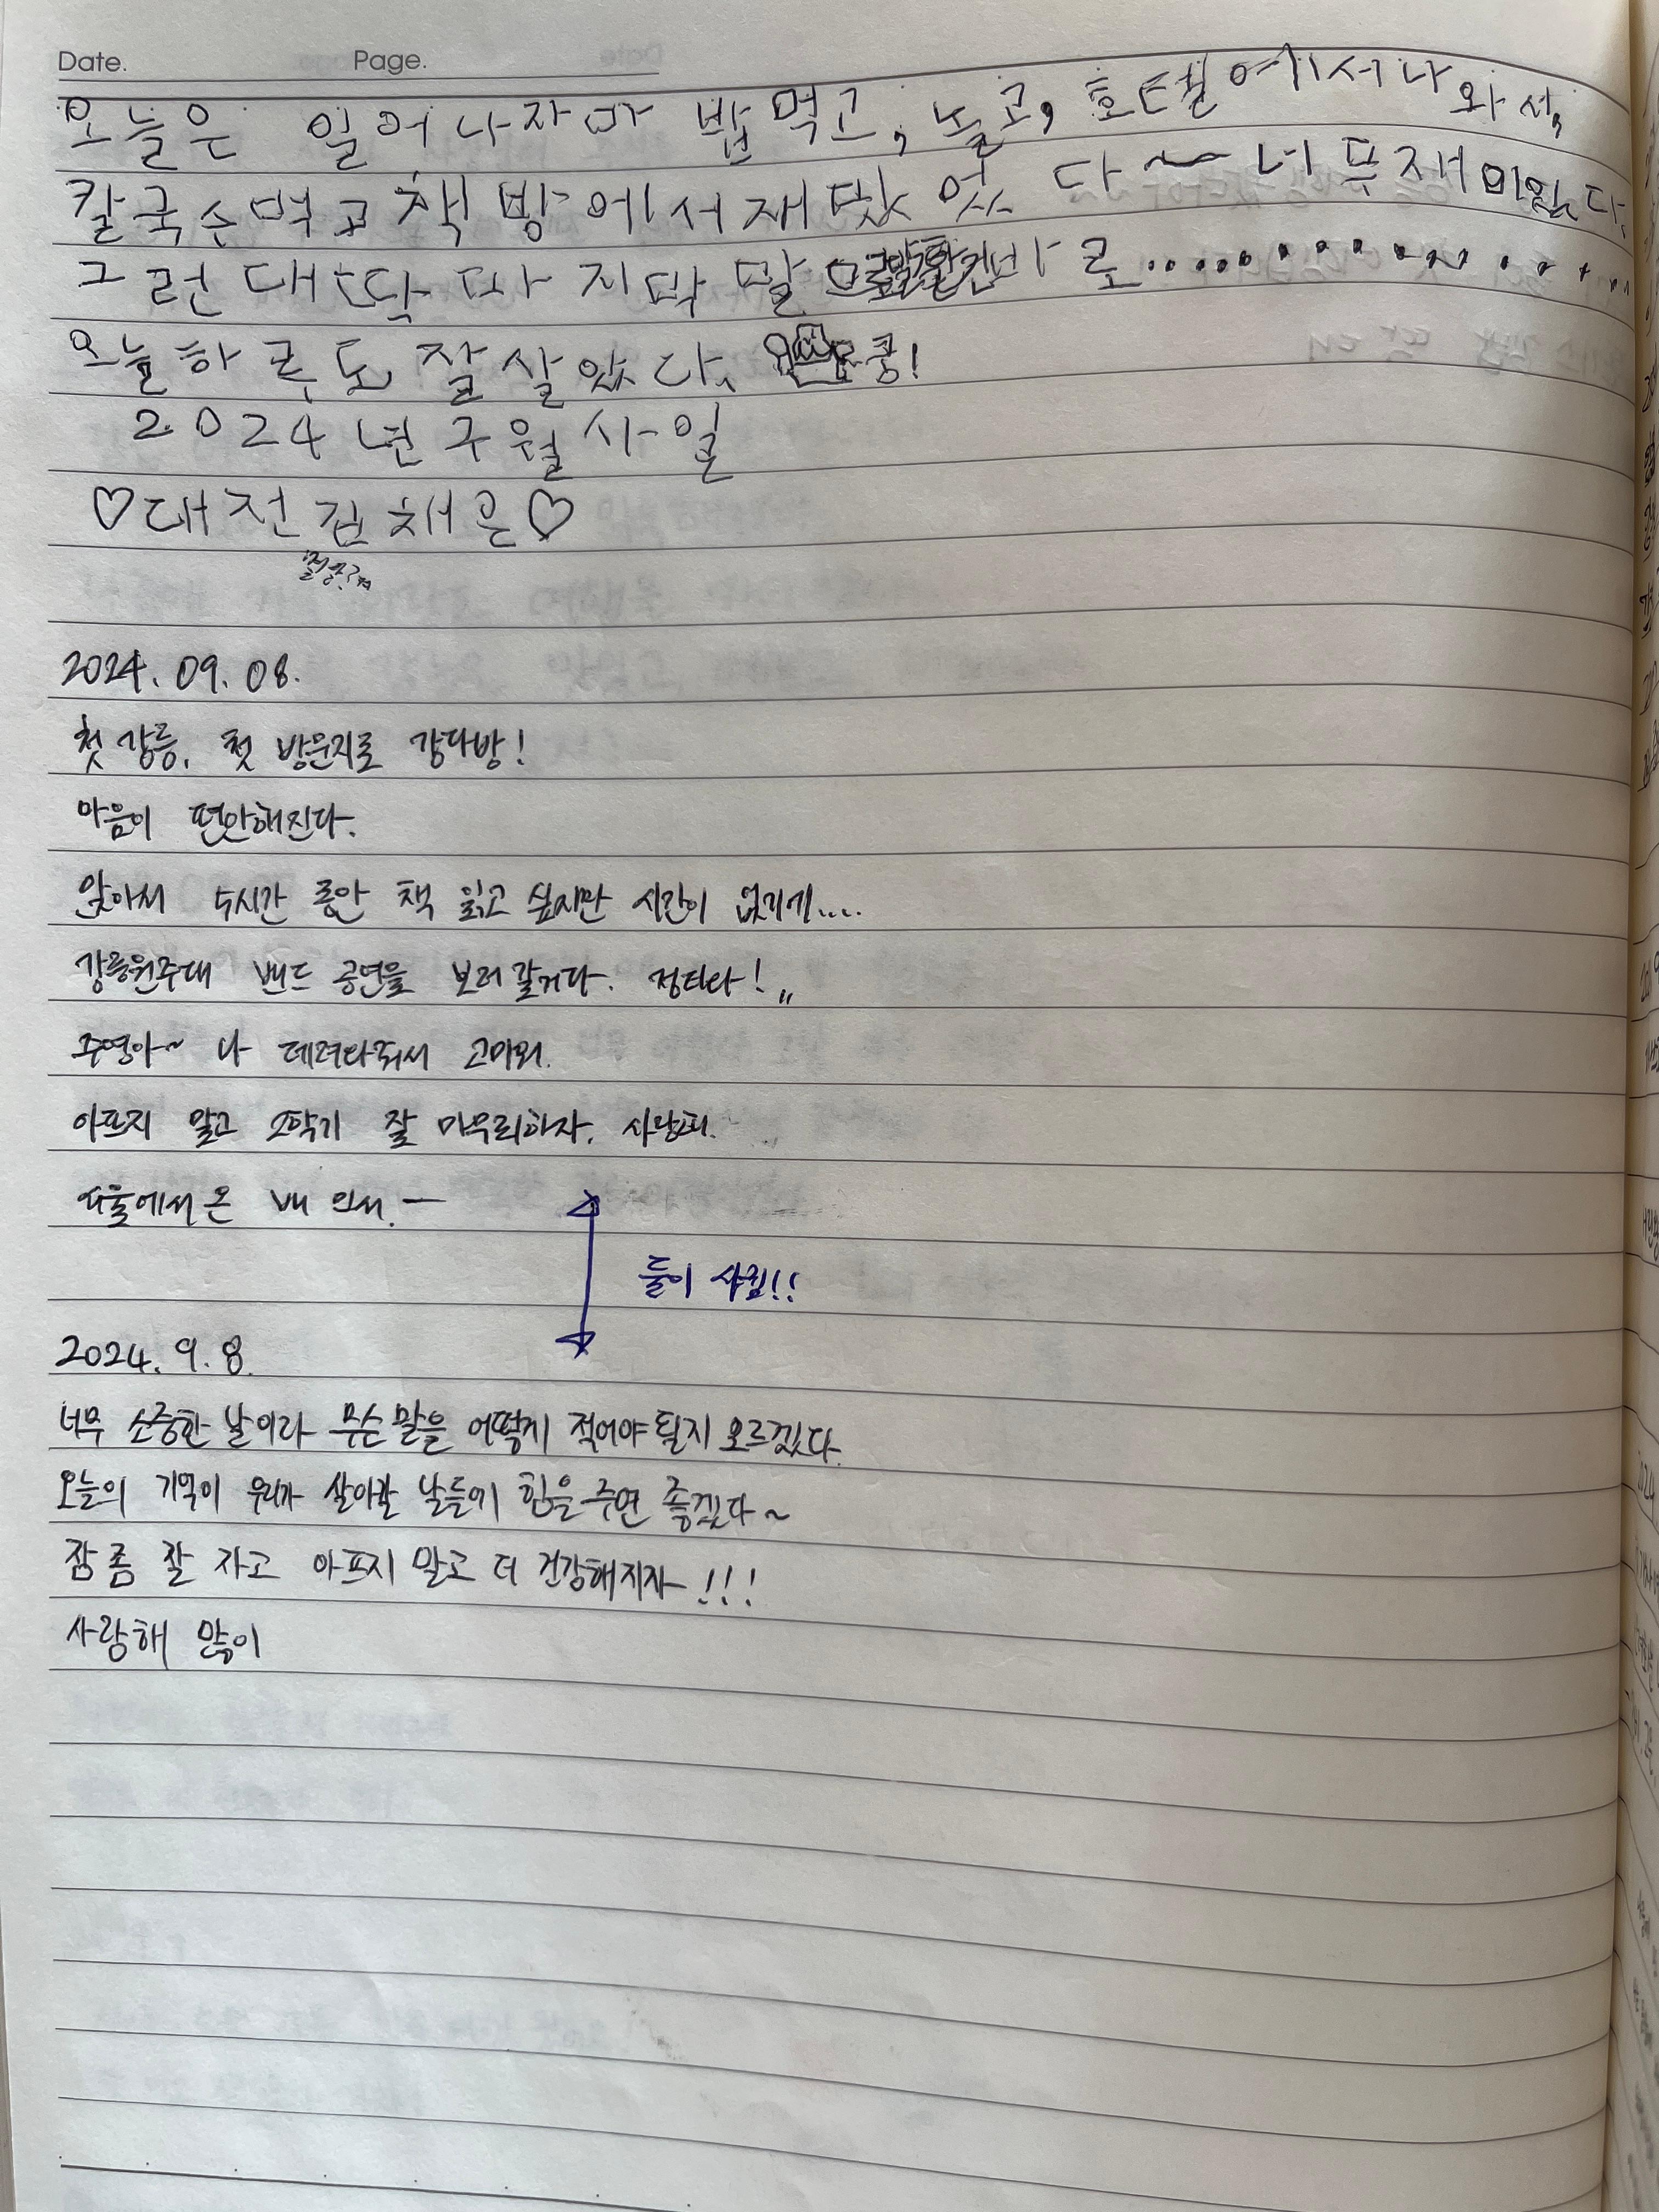 Date. Page.
오늘은 일어나자마 밥먹고, 놀고, 호텔에서나와서,
칼국수먹고 책방에서재밌었다~ 너무재미있다
그런대 딱 마지막말 바로..................
오늘하루도 잘살았다. 쿵!
2024년구월사일
♡대전김채은♡
2024. 09. 08.
첫 강릉, 첫 방문지로 강다방!
마음이 편안해진다.
앉아서 수시간 동안 책 읽고 싶지만 시간이 없기에....
강릉원주대 밴드 공연을 보러갈거다. 정타타!
주영아~ 나 데려다줘서 고마워.
아프지 말고 2학기 잘 마무리하자. 사랑해.
서울에서 온 배 인서. ㅡ
둘이 사귐!!
2024. 9. 8.
너무 소중한 날이라 무슨말을 어떻게 적어야 될지 모르겠다.
오늘의 기억이 우리가 살아갈 날들에 힘을 주면 좋겠다~
잠 좀 잘 자고 아프지 말고 더 건강해지자!!!
사랑해 많이